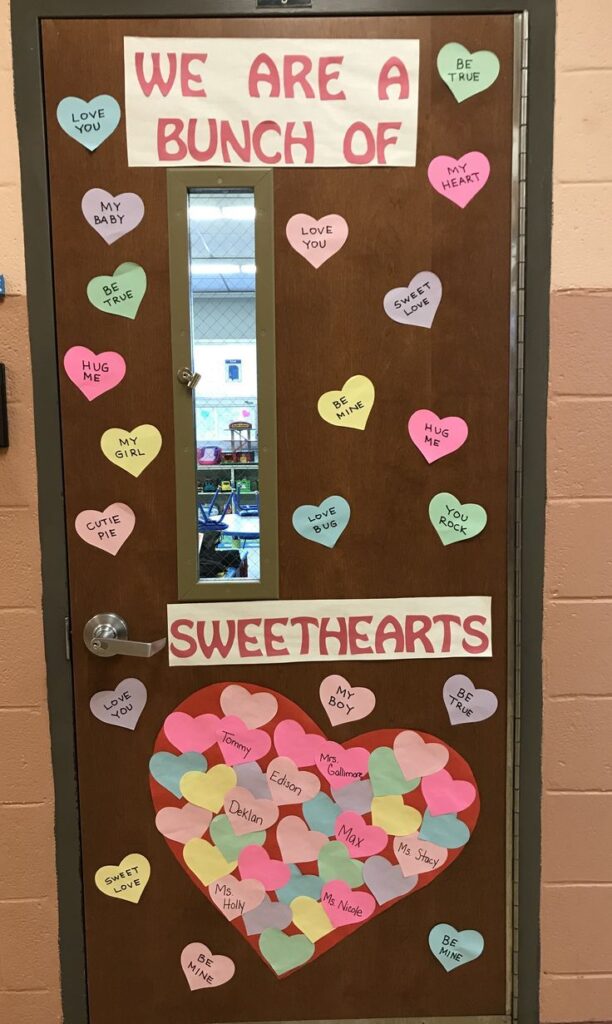 WE ARE A
BUNCH OF
BE
TRUE
LOVE
YOU
MY
HEART
MY
BABY
LOVE
YOU
BE
TRUE
SWEET
LOVE
HUG
ME
BE
MINE
MY
GIRL
HUG
ME
CUTIE
PIE
LOVE
BUG
YOU
ROCK
SWEETHEARTS
LOVE
YOU
MY
BOY
BE
TRUE
Tommy
Mrs.
Gallimore
Edison
Deklan
Max
Ms. Stacy
Ms.
Holly
Ms. Nicole
SWEET
LOVE
BE
MINE
BE
MINE